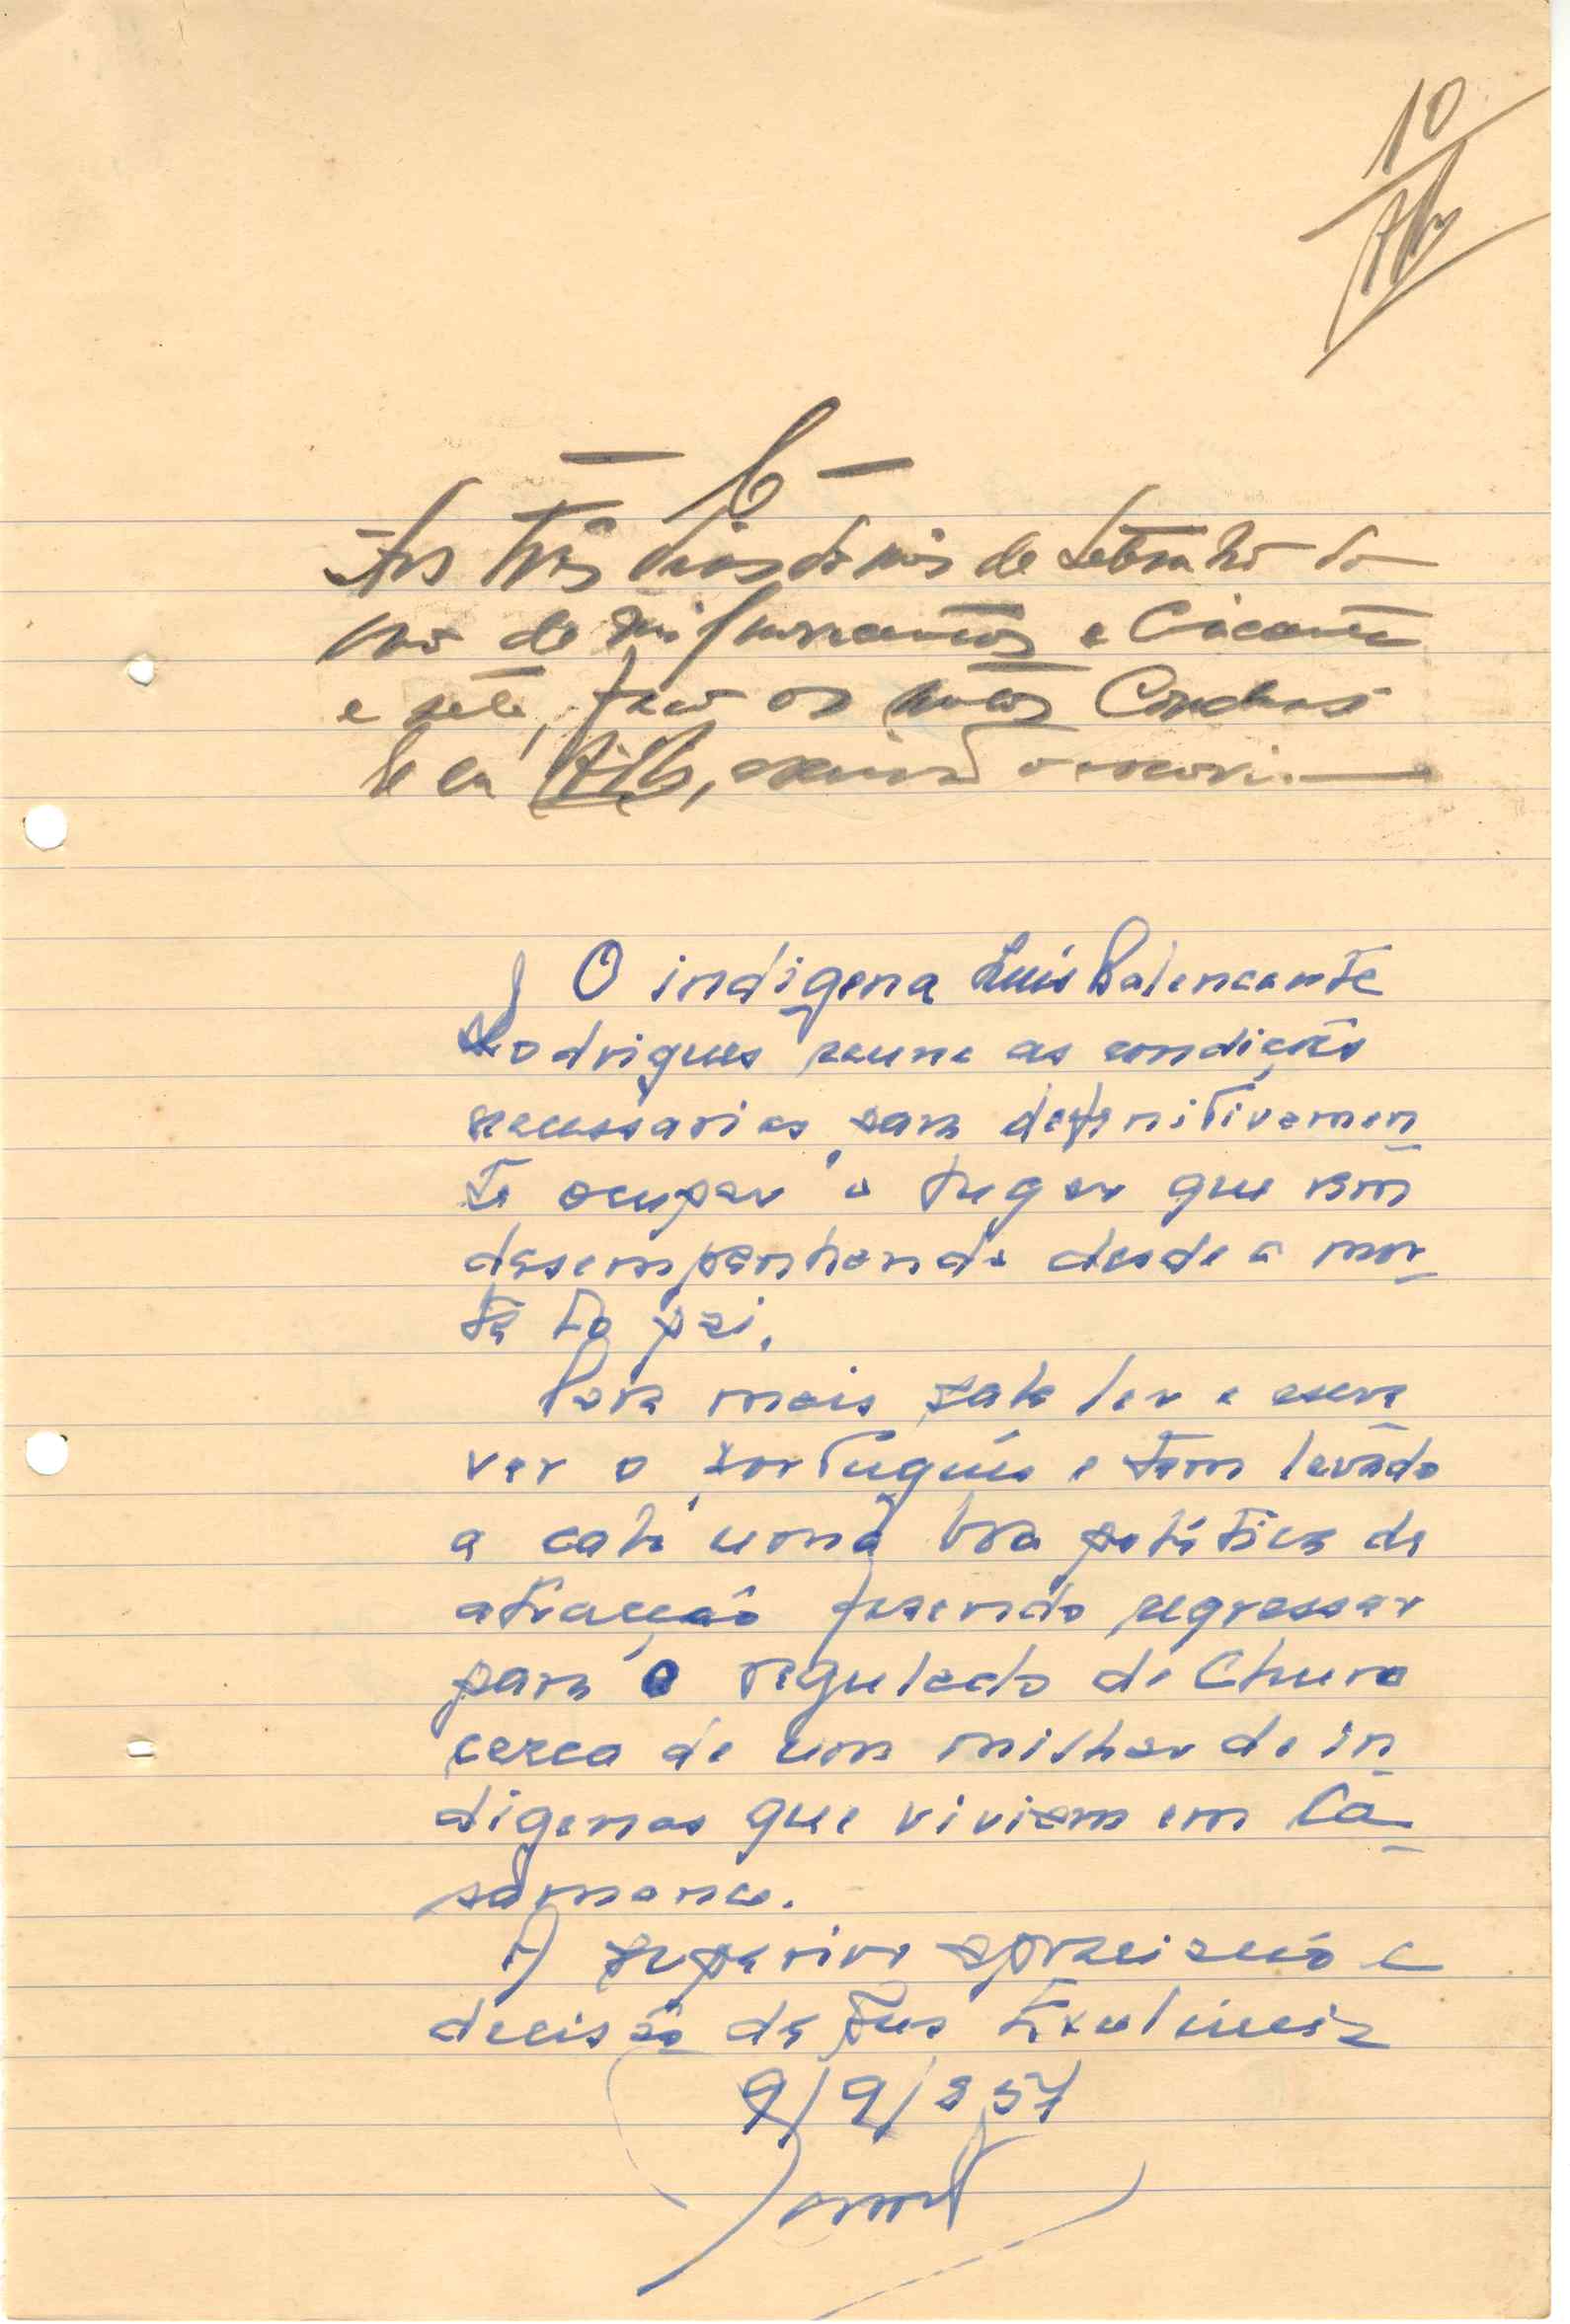 10
Aos três dias do mês de Setembro do
ano de mil novecentos e cincoenta
e sete, faço os autos conclusos
E eu, escrivão o escrevi.
O indigena Luís
Rodrigues reune as condições
necessarias para definitivamen
te ocupar o lugar que vem
desempenhando desde a mor
te do pai.
Para mais sabe ler e escre
ver o português e tem levado
a cabo uma boa politica de
atracção fazendo regressar
para o regulado de Churo
cerca de um milhar de in
digenas que viviam em Ca
samance.
À superior apreciação e
decisão de Sua Excelência
9/9/957